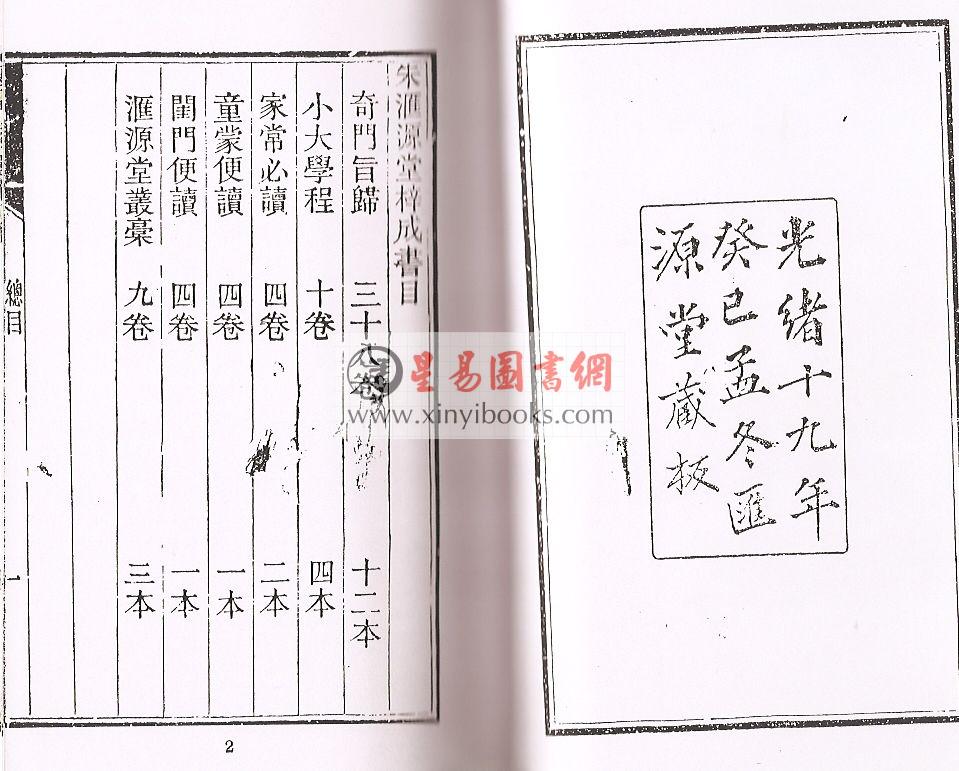 光緒十九年
癸巳孟冬匯
源堂藏板
朱滙源堂梓成書目
奇門旨歸 三十八卷 十二本
小大學程 十卷 四本
家常必讀 四卷 二本
童蒙便讀 四卷 一本
閨門便讀 四卷 一本
滙源堂叢稾 九卷 三本
總目
一
2
星易圖書網
www.xinyibooks.com